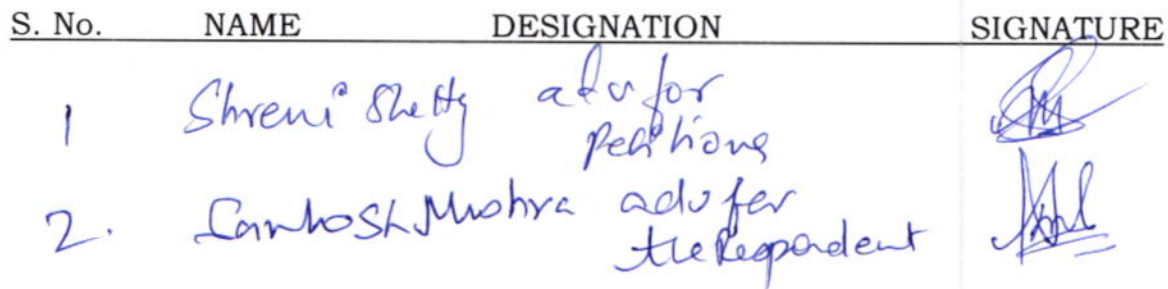 S. No. NAME DESIGNATION SIGNATURE
1 Shreni Shetty adv for
Petitions
2. Santosh Mishra adv for
the Respondent